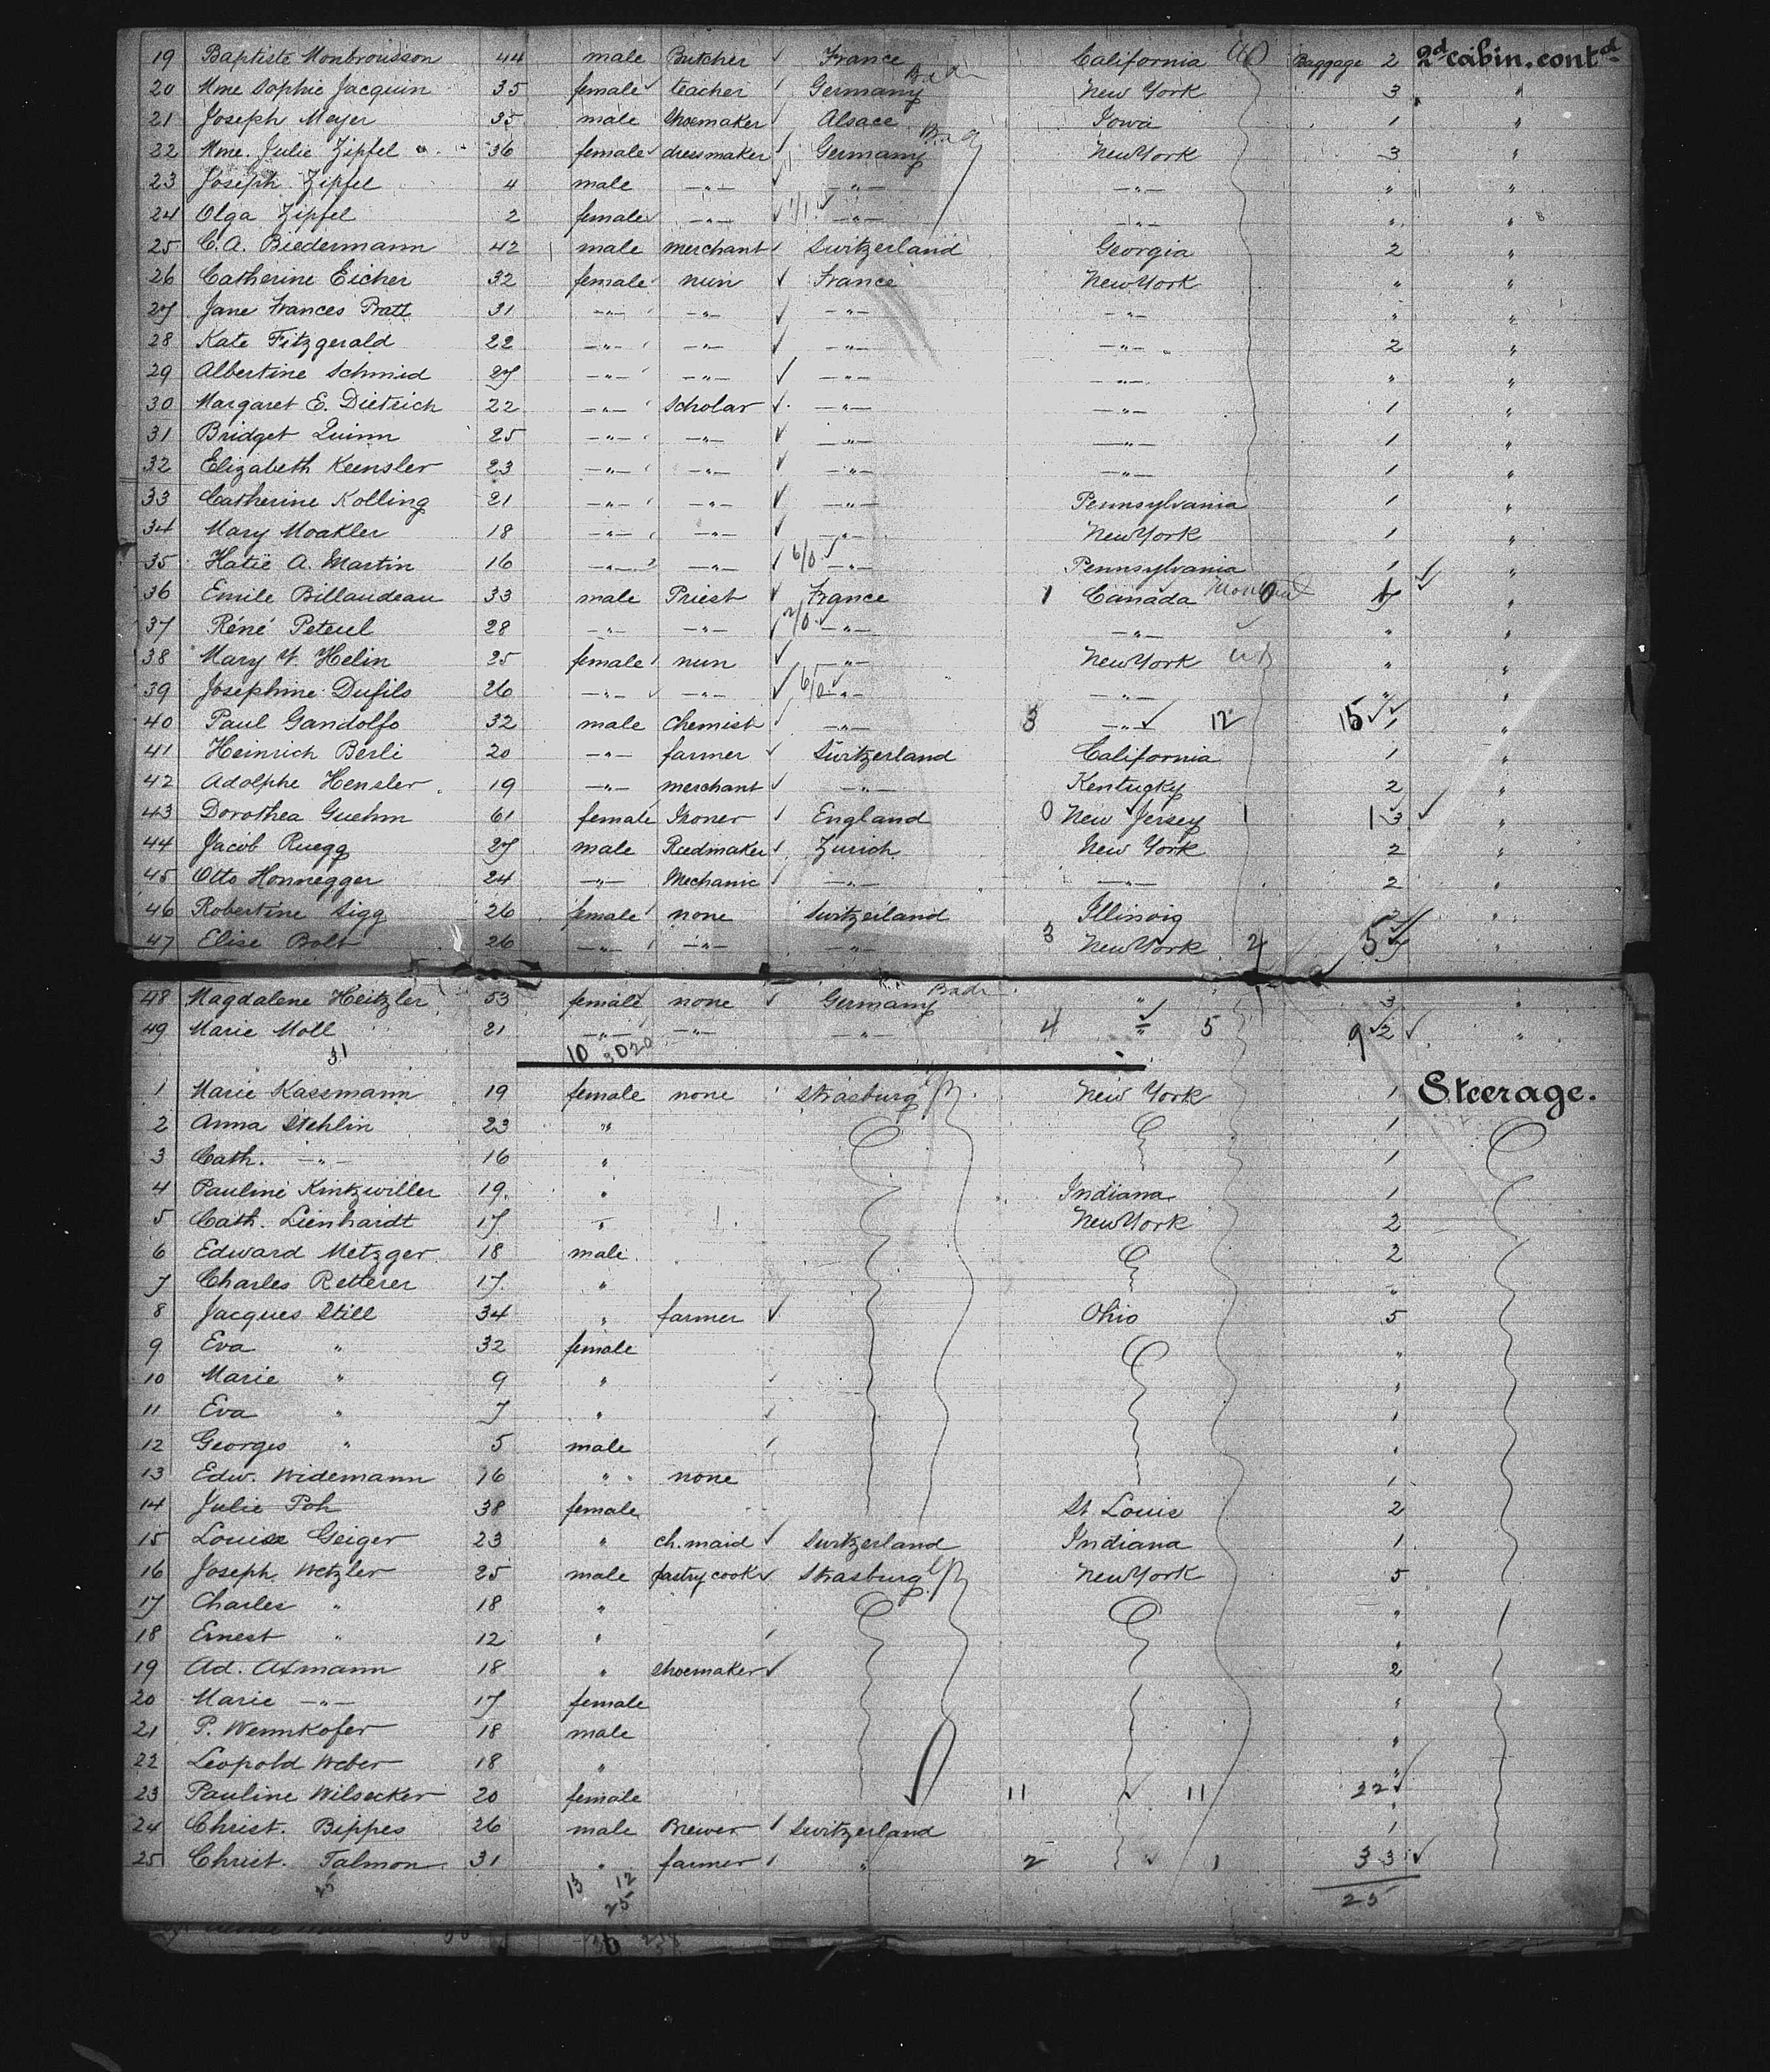 19 Baptiste Monbrousson 44 male Butcher ✓ France California Baggage 2 2d cabin. contd
20 Mme Sophie Jacquin 35 female teacher Germany New York 3 "
21 Joseph Meyer 35 male Shoemaker Alsace Iowa 1 "
22 Mme. Julie Zipfel 36 female dressmaker Germany New York 3 "
23 Joseph Zipfel 4 male —"— ✓ —"— —"— " "
24 Olga Zipfel 2 female —"— ✓ —"— —"— " "
25 C. A. Biedermann 42 male merchant Switzerland Georgia 2 "
26 Catherine Eicher 32 female nun ✓ France New York " "
27 Jane Frances Pratt 31 —"— —"— ✓ —"— —"— " "
28 Kate Fitzgerald 22 —"— —"— ✓ —"— —"— 2 "
29 Albertine Schmid 27 —"— —"— ✓ —"— —"— " "
30 Margaret E. Dietrich 22 —"— Scholar ✓ —"— —"— 1 "
31 Bridget Quinn 25 —"— —"— ✓ —"— —"— 1 "
32 Elizabeth Keensler 23 —"— —"— ✓ —"— —"— 1 "
33 Catherine Kolling 21 —"— —"— ✓ —"— Pennsylvania 1 "
34 Mary Moakler 18 —"— —"— ✓ —"— New York 1 "
35 Katie A. Martin 16 —"— —"— ✓ 6/0 ✓ —"— Pennsylvania 1 ✓ "
36 Emile Billaudeau 33 male Priest ✓ France 1 Canada Montreal 0 ✓ "
37 Réné Peteul 28 —"— —"— ✓ 2/0 ✓ —"— —"— " "
38 Mary Y. Helin 25 female nun ✓ —"— New York " "
39 Josephine Dufils 26 —"— —"— ✓ 6/0 ✓ —"— —"— " "
40 Paul Gandolfo 32 male Chemist —"— 3 —"— ✓ 12 15 ✓✓ 1 "
41 Heinrich Berli 20 —"— farmer ✓ Switzerland California 1 "
42 Adolphe Hensler 19 —"— merchant ✓ —"— Kentugky 2 "
43 Dorothea Guehm 61 female Ironer England 0 New Jersey 1 1 3 ✓ "
44 Jacob Ruegg 27 male Reedmaker Zurich New York 2 "
45 Otto Honnegger 24 —"— Mechanic —"— —"— 2 "
46 Robertine Sigg 26 female none Switzerland Illinoig 3 "
47 Elise Bolt 26 —"— —"— —"— 3 New York 2 5 ✓ "
48 Magdalene Heitzler 53 female none ✓ Germany Bade " 3 "
49 Marie Moll 21 —"— —"— —"— 4 " 5 9 ✓ 2 ✓ "
31 10 30 20
1 Marie Kassmann 19 female none Strasburg New York 1 Steerage.
2 Anna Stehlin 23 " 1
3 Cath. —"— 16 " 1
4 Pauline Kintzwiller 19. " Indiana 1
5 Cath. Lienhardt 17 " New York 2
6 Edward Metzger 18 male 2
7 Charles Retterer 17. " "
8 Jacques Still 34 " farmer ✓ Ohio 5
9 Eva " 32 female "
10 Marie " 9 " "
11 Eva " 7 "
12 Georges " 5 male
13 Edw. Widemann 16 " none 1
14 Julie Poh 38 female St Louis 2
15 Louise Geiger 23 " ch. maid ✓ Switzerland Indiana 1
16 Joseph Wetzler 25 male pastry cook ✓ Strasburg New York 5
17 Charles " 18 " "
18 Ernest " 12 " "
19 Ad. Axmann 18 " Shoemaker ✓ 2
20 Marie —"— 17 female "
21 P. Wennkofer 18 male "
22 Leopold Weber 18 " "
23 Pauline Wilsecker 20 female 11 ✓ 11 22 ✓
24 Christ. Bippes 26 male Brewer Switzerland 1
25 Christ. Talmon 31 " farmer " 2 " 1 3 3 ✓
25 13 12 25 25